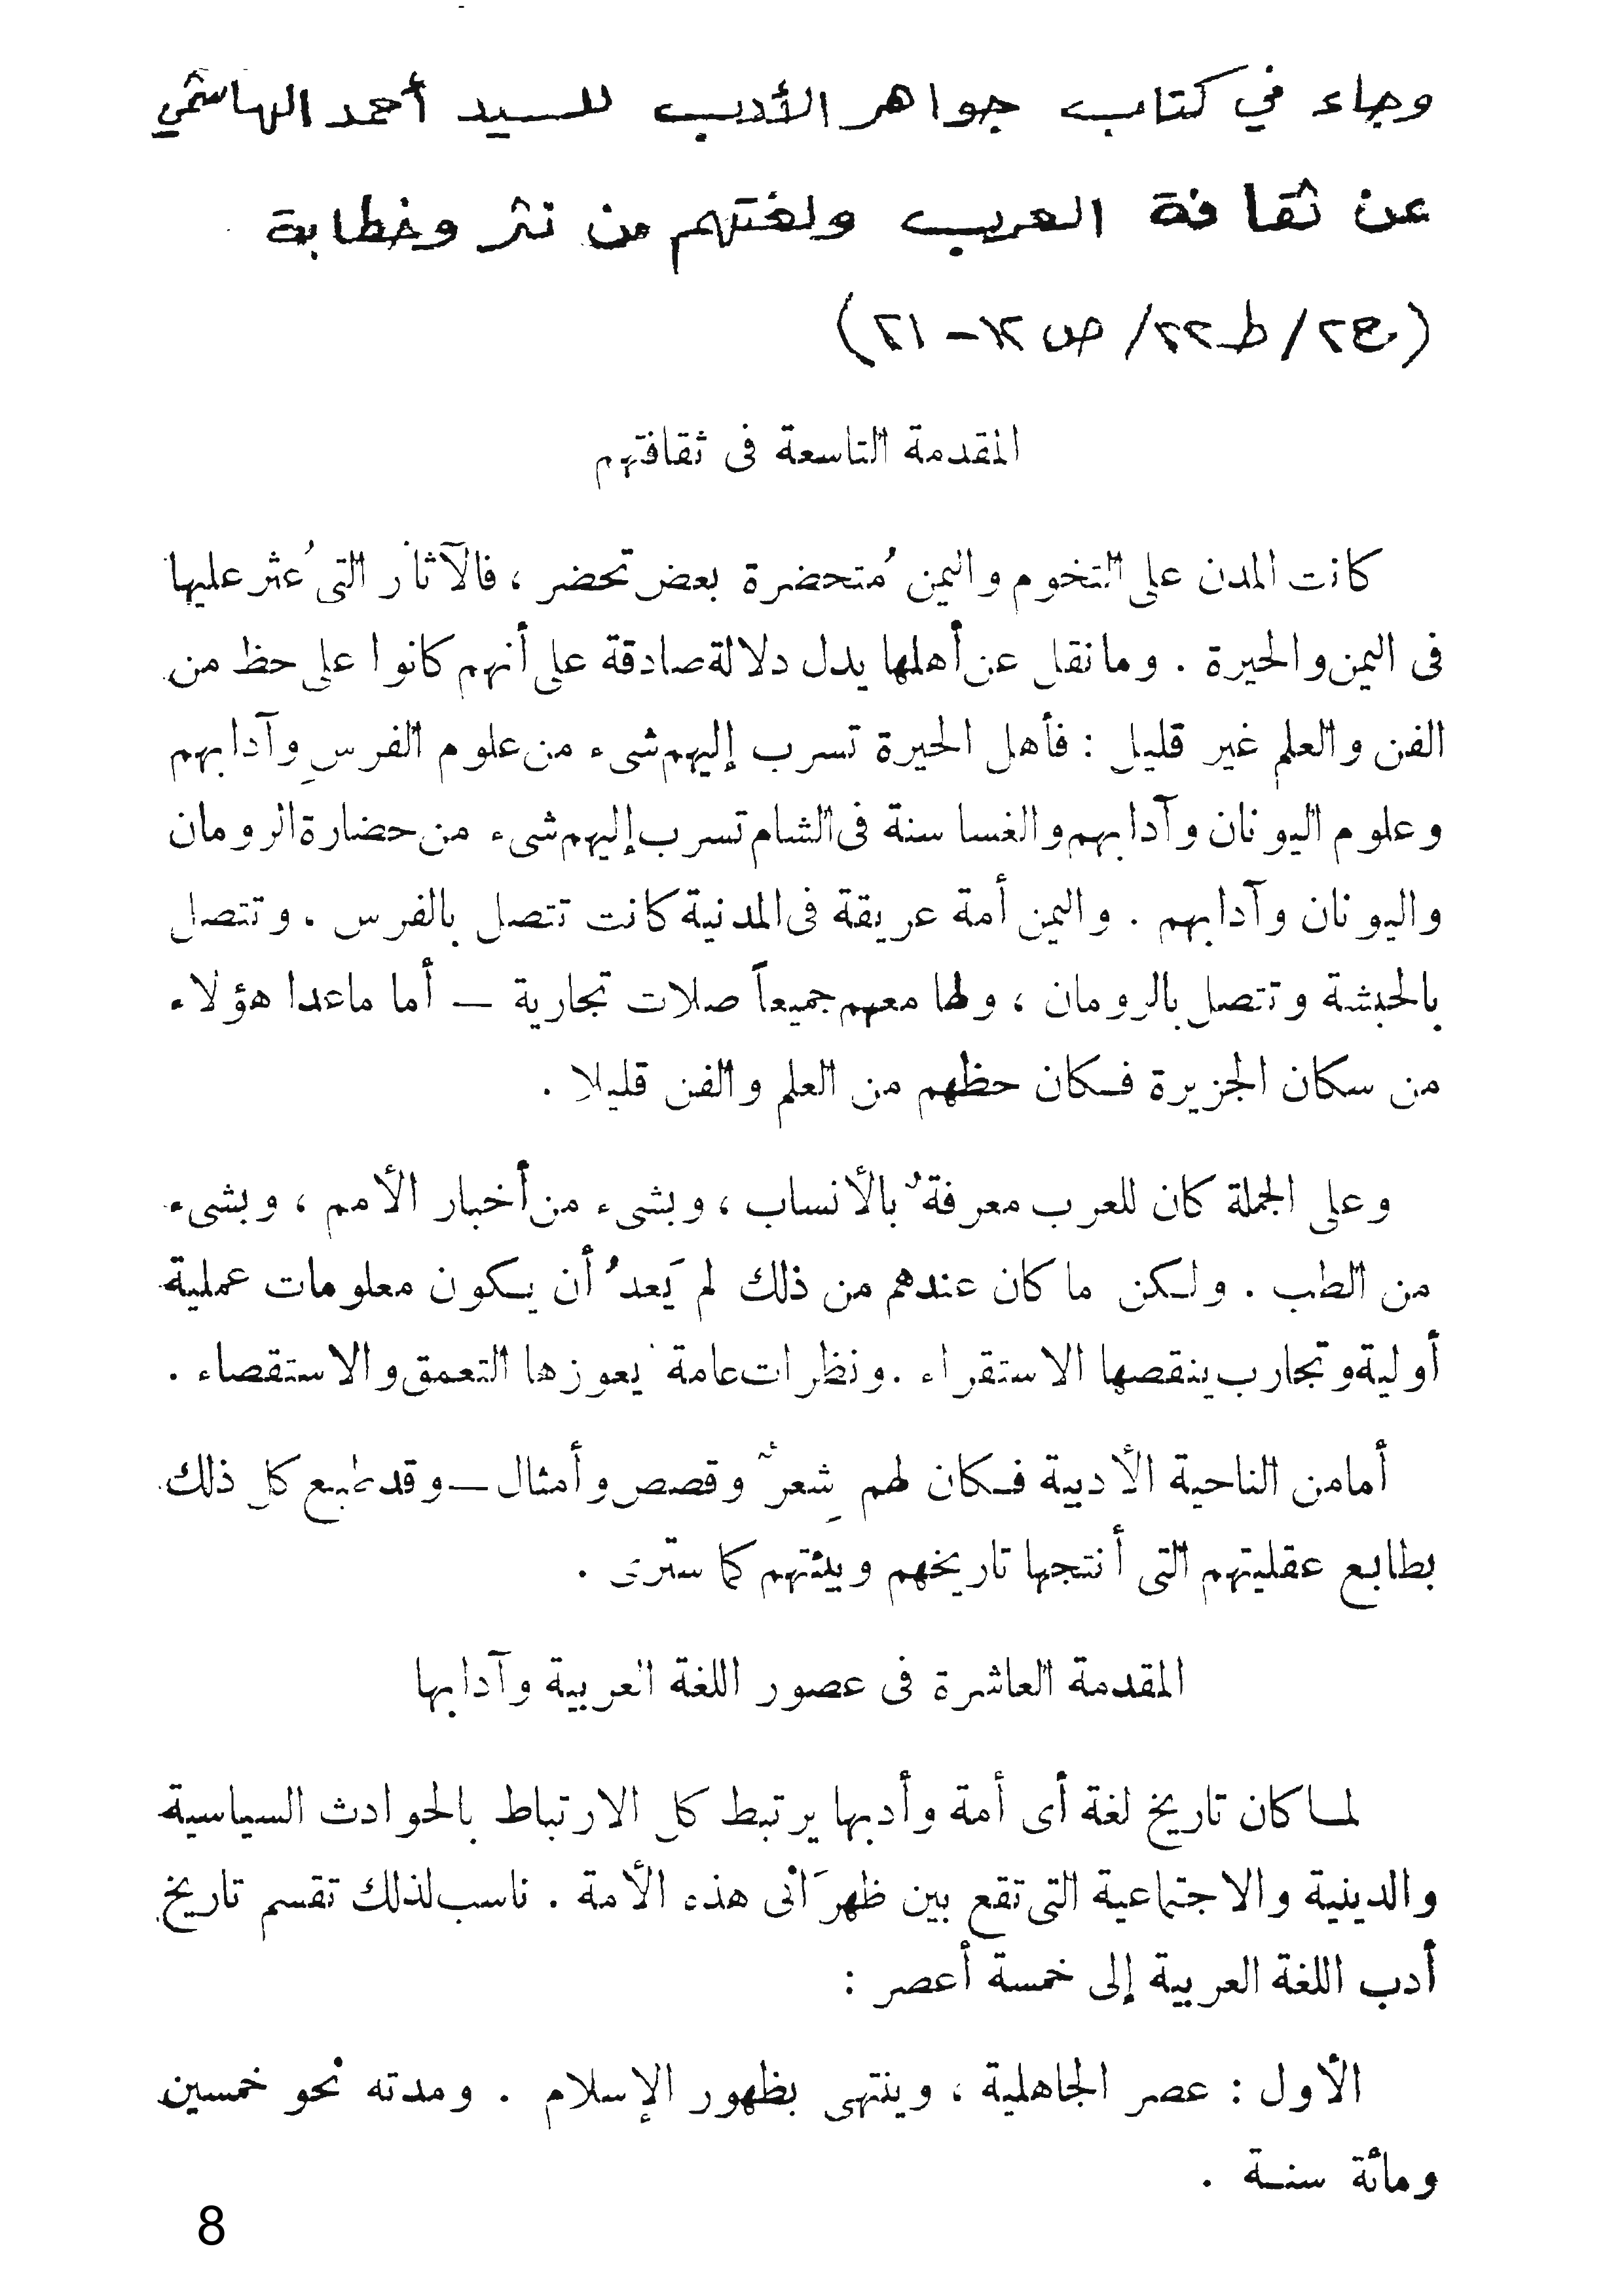 وجاء في كتاب جواهر الأدب للسيد أحمد الهاشمي
عن ثقافة العرب ولغتهم من نثر وخطابة
(ج٢/ ط٢٢/ ص - ٢١)
المقدمة التاسعة فى ثقافتهم
كانت المدن على التخوم واليمن مُتحضرة بعض تحضر ، فالآثار التى عُثر عليها
فى اليمن والحيرة . وما نقل عن أهلها يدل دلالة صادقة على أنهم كانوا على حظ من
الفن والعلم غير قليل : فأهل الحيرة تسرب إليهم شىء من علوم الفرسِ وآدابهم
وعلوم اليونان وآدابهم والغساسنة فى الشام تسرب إليهم شىء من حضارة الرومان
واليونان وآدابهم . واليمن أمة عريقة فى المدنية كانت تتصل بالفرس . وتتصل
بالحبشة وتتصل بالرومان ، ولها معهم جميعاً صلات تجارية — أما ماعدا هؤلاء
من سكان الجزيرة فكان حظهم من العلم والفن قليلا .
وعلى الجملة كان للعرب معرفةٌ بالأنساب ، وبشىء من أخبار الأمم ، وبشىء
من الطب . ولكن ما كان عندهم من ذلك لم يَعدُ أن يكون معلومات عملية
أولية وتجارب ينقصها الاستقراء . ونظرات عامة يعوزها التعمق والاستقصاء .
أما من الناحية الأدبية فكان لهم شِعرٌ وقصص وأمثال — وقد طبع كل ذلك
بطابع عقليتهم التى أنتجها تاريخهم وبيئتهم كما سترى .
المقدمة العاشرة فى عصور اللغة العربية وآدابها
لما كان تاريخ لغة أى أمة وأدبها يرتبط كل الارتباط بالحوادث السياسية
والدينية والاجتماعية التى تقع بين ظهرَانى هذه الأمة . ناسب لذلك تقسم تاريخ
أدب اللغة العربية إلى خمسة أعصر :
الأول : عصر الجاهلية ، وينتهى بظهور الإسلام . ومدته نحو خمسين
ومائة سنة .
8